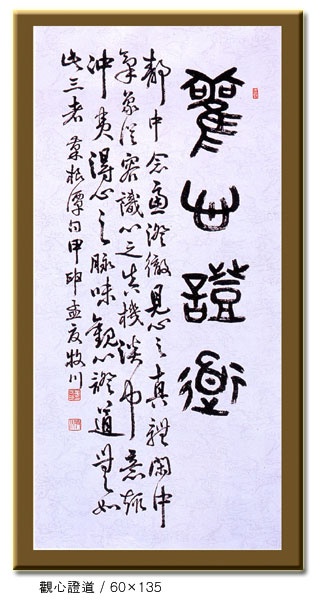 觀心證道
靜中念慮澄徹見心之真體閑中
氣象從容識心之真機淡中意趣
沖夷得心之脈味觀心證道無如
此三者 菜根潭句 甲申孟夏 牧川
觀心證道 / 60×135